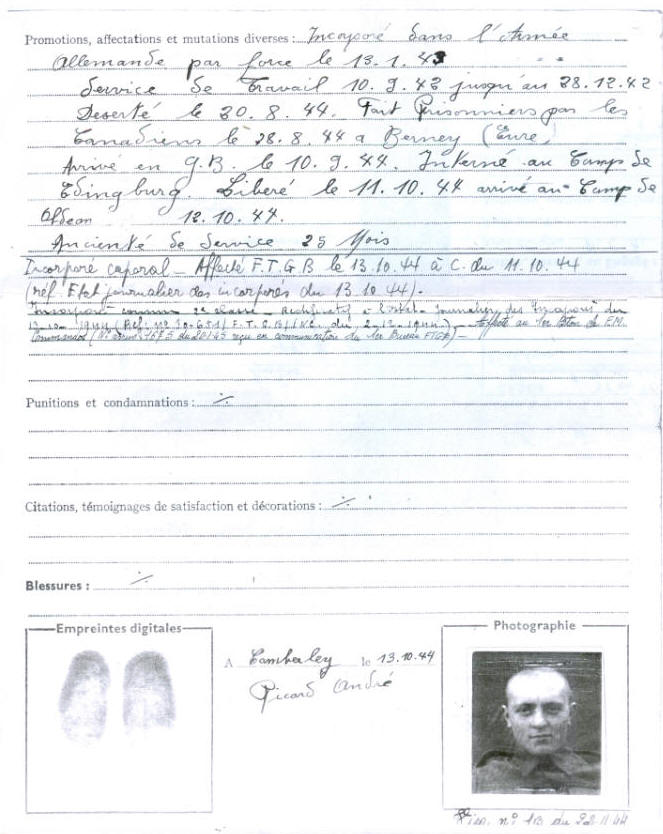 Promotions, affectations et mutations diverses : Incorporé dans l'Armée
Allemande par force le 13.1.43
Service de Travail 10.9.42 jusqu'au 28.12.42
Deserté le 20.8.44. Fait Prisonniers par les
Canadiens le 28.8.44 a Berney (Eure)
Arrivé en G.B. le 10.9.44. Interné au Camp de
Edingburg. Liberé le 11.10.44 arrivé au Camp de
12.10.44.
Ancienté de Service 25 Mois
Incorporé caporal _ Affecté F.T.G.B le 13.10.44 à C. du 11.10.44
(réf. Etat journalier des incorporés du 13.10.44).
Incorporé comme 2e classe _ Rectificatif a Journalier des Incorporés du
1944
Punitions et condamnations :
Citations, témoignages de satisfaction et décorations :
Blessures :
Empreintes digitales
A Camberley le 13.10.44
Picard André
Photographie
n° 113 du 22.11.44